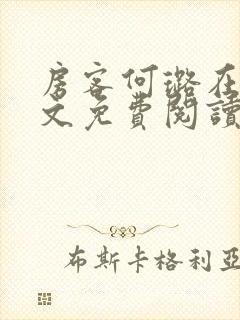 房客何璐在
文免費閱讀
布斯卡格利亞